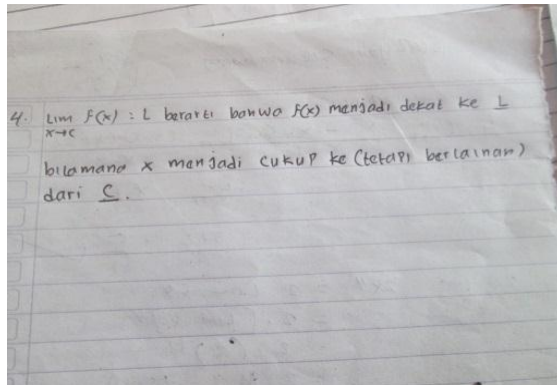 4. Lim f(x) : L berarti bahwa f(x) menjadi dekat ke L
x→c
bilamana x menjadi cukup ke (tetapi berlainan)
dari C.